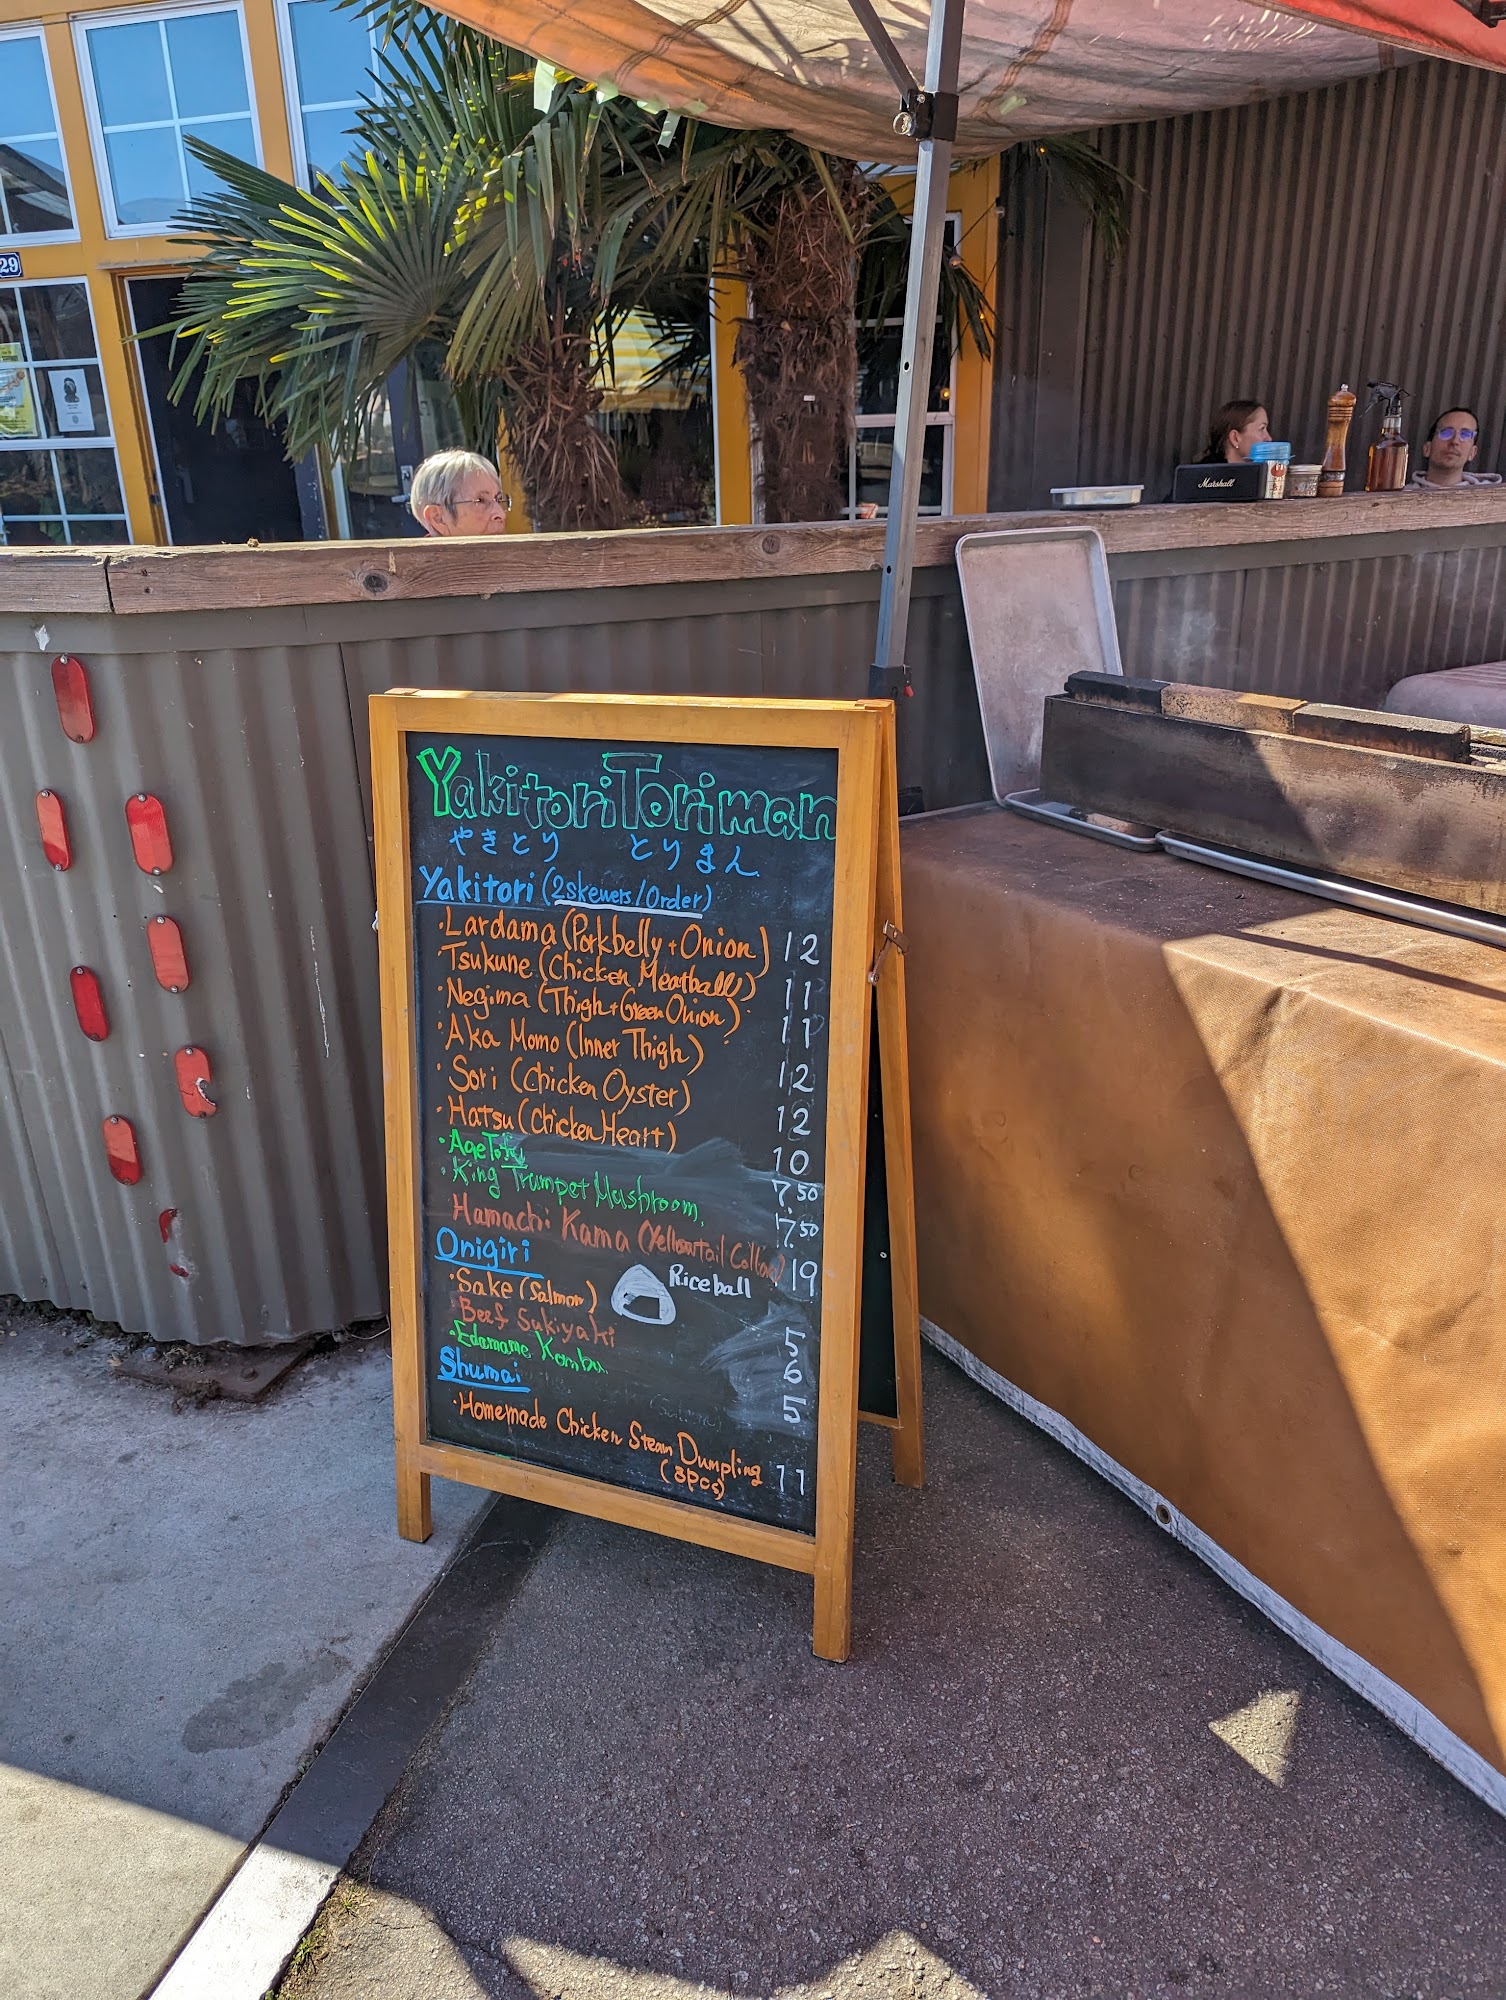 29
Marshall
YakitoriToriman
やきとり とりまん
Yakitori (2skewers/Order)
·Lardama (Porkbelly + Onion) 12
·Tsukune (Chicken Meatball) 11
·Negima (Thigh + Green Onion) 11
·Aka Momo (Inner Thigh) 12
·Sori (Chicken Oyster) 12
·Hatsu (Chicken Heart) 10
·Age Tofu 7.50
·King Trumpet Mushroom 7.50
Hamachi Kama (Yellowtail Collar) 19
Onigiri
Riceball
·Sake (Salmon) 5
Beef Sukiyaki 6
·Edamame Kombu 5
Shumai
·Homemade Chicken Steam Dumpling
(3pcs) 11